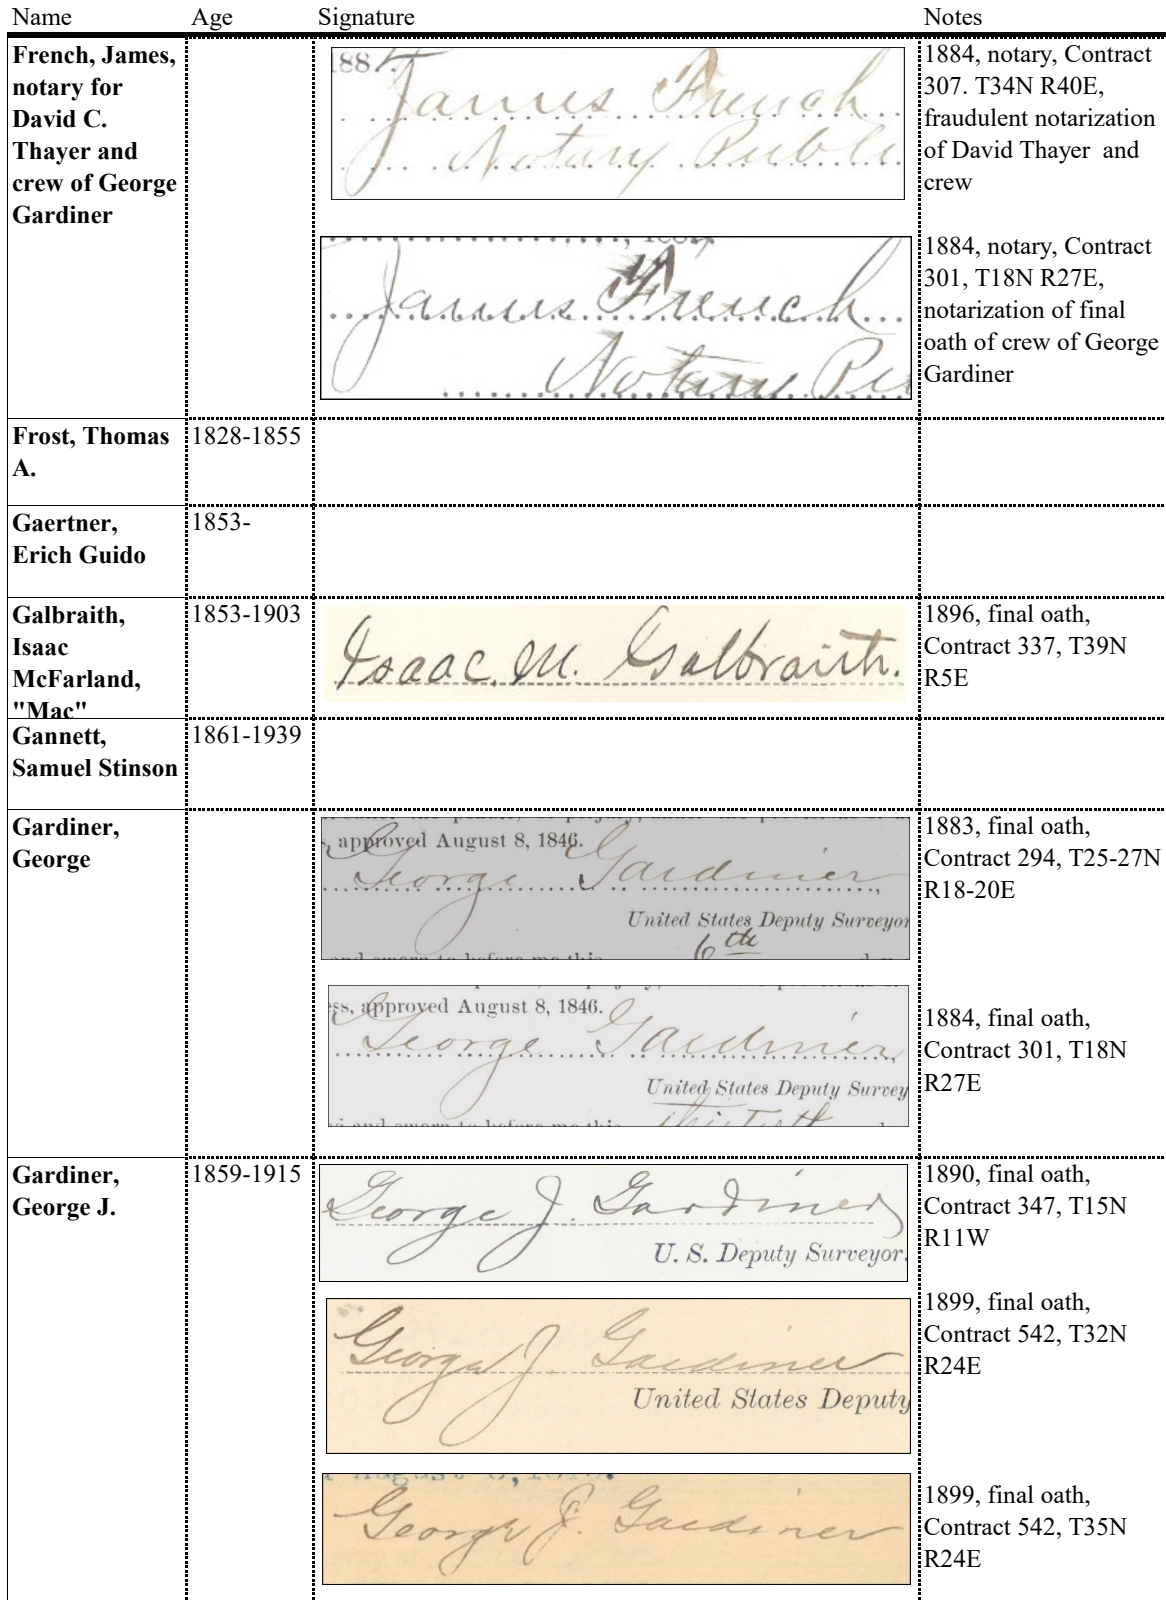 Name Age Signature Notes
French, James,
notary for
David C.
Thayer and
crew of George
Gardiner
1884
James French
Notary Public
1884, notary, Contract
307. T34N R40E,
fraudulent notarization
of David Thayer and
crew
James French
Notary Pu
1884, notary, Contract
301, T18N R27E,
notarization of final
oath of crew of George
Gardiner
Frost, Thomas
A.
1828-1855
Gaertner,
Erich Guido
1853-
Galbraith,
Isaac
McFarland,
"Mac"
1853-1903
Isaac. M. Galbraith.
1896, final oath,
Contract 337, T39N
R5E
Gannett,
Samuel Stinson
1861-1939
Gardiner,
George
s, approved August 8, 1846.
George Gardiner,
United States Deputy Surveyor
and sworn to before me this 6th
1883, final oath,
Contract 294, T25-27N
R18-20E
ss, approved August 8, 1846.
George Gardiner,
United States Deputy Survey
and sworn to before me this
1884, final oath,
Contract 301, T18N
R27E
Gardiner,
George J.
1859-1915
George J. Gardiner
U. S. Deputy Surveyor.
1890, final oath,
Contract 347, T15N
R11W
George J. Gardiner
United States Deputy
1899, final oath,
Contract 542, T32N
R24E
George J. Gardiner
1899, final oath,
Contract 542, T35N
R24E